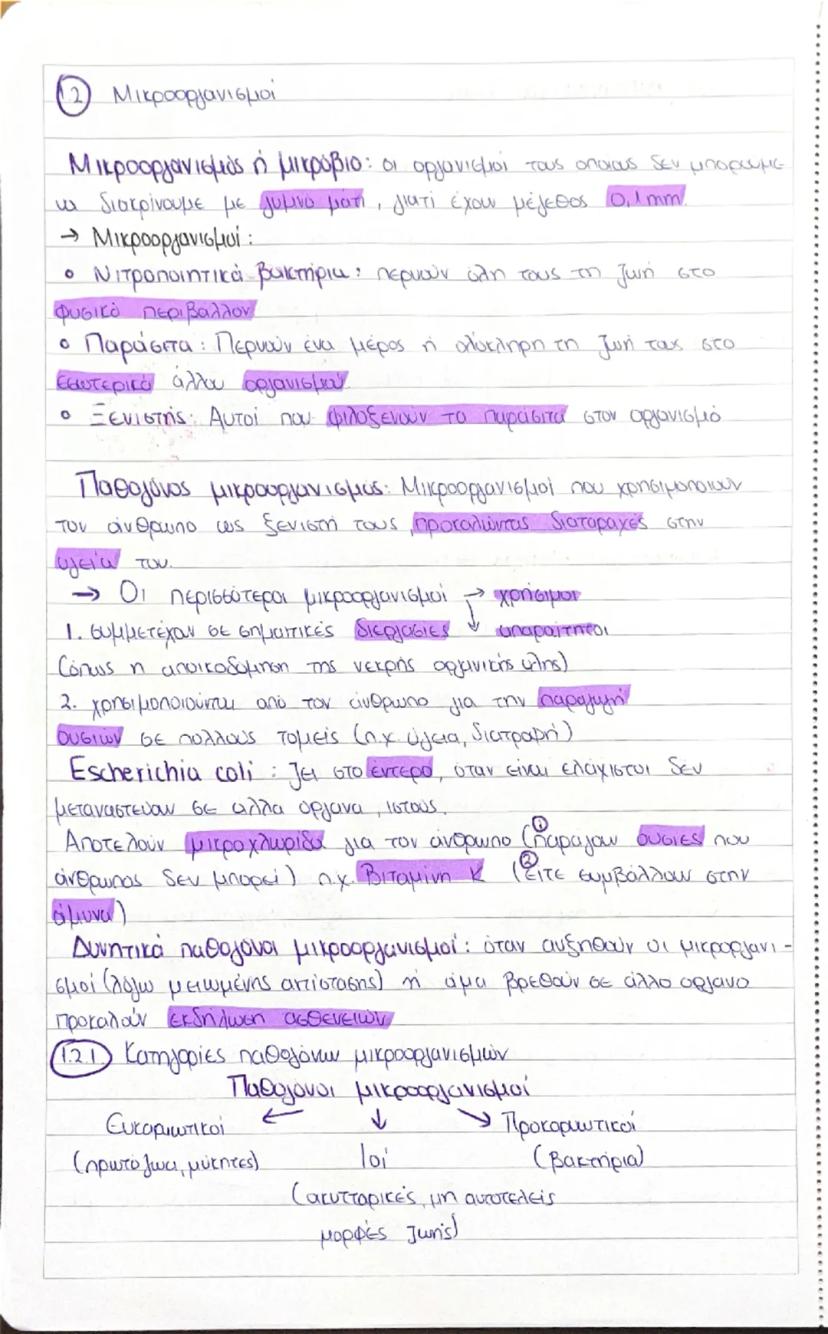 1.2 Μικροοργανισμοί
Μικροοργανισμός ή μικρόβιο: οι οργανισμοί τους οποίους δεν μπορούμε
να διακρίνουμε με γυμνό μάτι, γιατί έχουν μέγεθος 0,1mm.
→ Μικροοργανισμοί:
• Νιτροποιητικά βακτήρια: περνούν όλη τους τη ζωή στο
φυσικό περιβάλλον
• Παράσιτα: Περνούν ένα μέρος ή ολόκληρη τη ζωή τους στο
εσωτερικό άλλου οργανισμού
• Ξενιστής: Αυτοί που φιλοξενούν το παράσιτα στον οργανισμό
Παθογόνος μικροοργανισμός: Μικροοργανισμοί που χρησιμοποιούν
τον άνθρωπο ως ξενιστή τους, προκαλώντας διαταραχές στην
υγεία του.
→ Οι περισσότεροι μικροοργανισμοί → χρήσιμοι
1. συμμετέχουν σε σημαντικές διεργασίες ↓ απαραίτητοι
(όπως η αποικοδόμηση της νεκρής οργανικής ύλης)
2. χρησιμοποιούνται από τον άνθρωπο για την παραγωγή
ουσιών σε πολλούς τομείς (π.χ. ύγεια, διατροφή)
Escherichia coli: ζει στο έντερο, όταν είναι ελάχιστοι δεν
μεταναστεύουν σε άλλα όργανα, ιστούς.
Αποτελούν μικροχλωρίδα για τον άνθρωπο (① παράγουν ουσιες που
άνθρωπος δεν μπορεί) π.χ. Βιταμίνη Κ (② είτε συμβάλλουν στην
άμυνα)
Δυνητικά παθογόνοι μικροοργανισμοί: όταν αυξηθούν οι μικρργανι-
σμοί (λόγω μειωμένης αντίστασης) ή άμα βρεθούν σε άλλο όργανο
προκαλούν εκδήλωση ασθενειών
1.2.1 Κατηγορίες παθογόνων μικροοργανισμών
Παθογόνοι μικροοργανισμοί
Ευκαρυωτικοί ← ↓ → Προκαρυωτικοί
(πρωτόζωα, μύκητες) Ιοί (βακτήρια)
(ακυτταρικές, μη αυτοτελείς
μορφές ζωής)